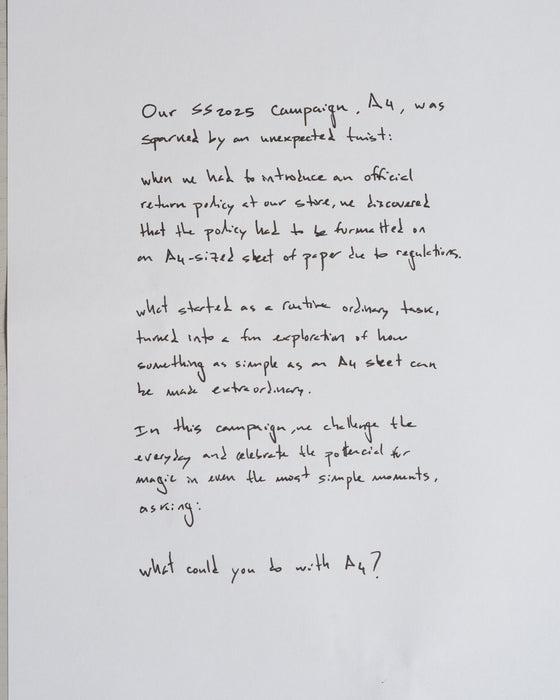 Our SS2025 campaign, A4, was
sparked by an unexpected twist:
when we had to introduce an official
return policy at our store, we discovered
that the policy had to be formatted on
an A4-sized sheet of paper due to regulations.
what started as a routine ordinary task,
turned into a fun exploration of how
something as simple as an A4 sheet can
be made extraordinary.
In this campaign, we challenge the
everyday and celebrate the potencial for
magic in even the most simple moments,
asking:
what could you do with A4?